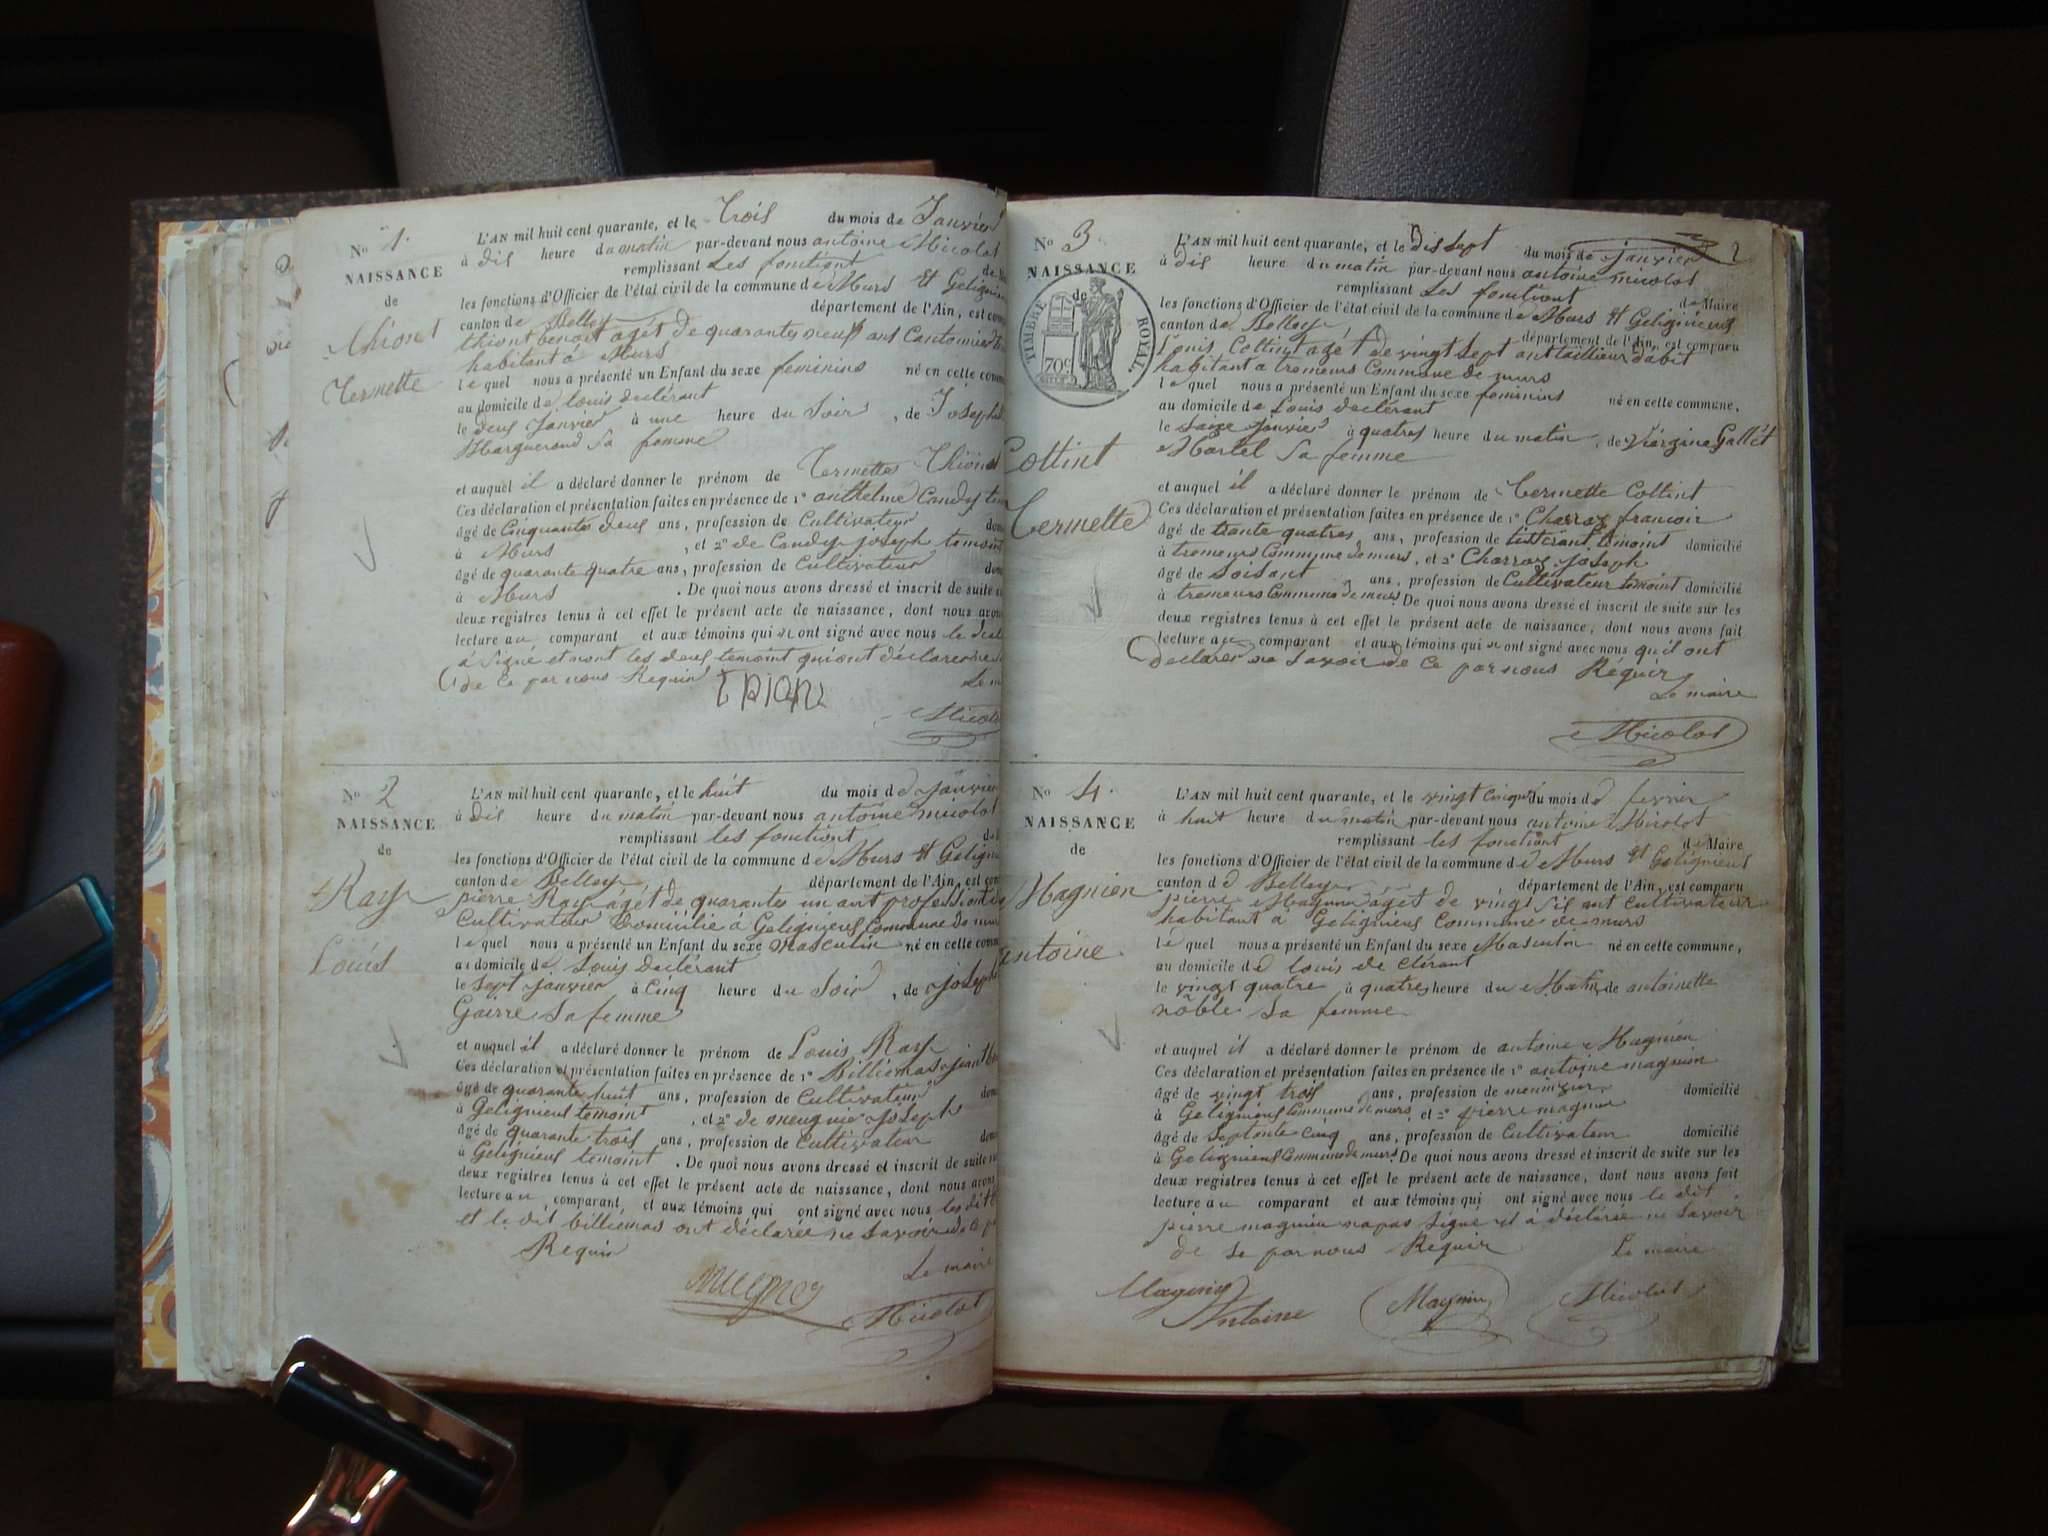 No 1.
NAISSANCE
de
Thiont
Termette
L'AN mil huit cent quarante, et le Trois du mois de Janvier
à dis heure du matin par-devant nous antoine Micolot
remplissant Les fonctiont
les fonctions d'Officier de l'état civil de la commune de Murs Et
canton de Belley département de l'Ain, est
thiont benoit agét de quarante neuf ans Cantonnier
habitant á Murs
le quel nous a présenté un Enfant du sexe feminins né en cette
au domicile de louis declérant
le deus Janvier à une heure du Soir, de
Marguerand Sa femme
et auquel il a déclaré donner le prénom de Termettes
Ces déclaration et présentation faites en présence de 1° anthelme Candy
âgé de Cinquante deus ans, profession de Cultivateur
à Murs, et 2° de Candy joseph temoint
âgé de quarante quatre ans, profession de Cultivateur
à Murs. De quoi nous avons dressé et inscrit de suite
deux registres tenus à cet effet le présent acte de naissance, dont nous
lecture au comparant et aux témoins qui ont signé avec nous le
á Signé et nont les deus temoint quiont déclarer ne
de Ce par nous Requir
Micolot
No 2
NAISSANCE
de
Ray
Louis
L'AN mil huit cent quarante, et le huit du mois de Janvier
à dis heure du matin par-devant nous antoine micolot
remplissant les fonctiont
les fonctions d'Officier de l'état civil de la commune de Murs Et
canton de Belley département de l'Ain, est
pierre Ray agét de quarante un ant profession
Cultivateur Domicilié á Geligniens Commune de
le quel nous a présenté un Enfant du sexe Masculin né en cette
au domicile de Louis declérant
le Sept Janvier à Cinq heure du Soir, de
Goirre Sa femme
et auquel il a déclaré donner le prénom de Louis Ray
Ces déclaration et présentation faites en présence de 1° Billiemas
âgé de quarante huit ans, profession de Cultivateur
à Geligniens temoint, et 2° de meugnié Joseph
âgé de quarante trois ans, profession de Cultivateur
à Geligniens temoint. De quoi nous avons dressé et inscrit de suite
deux registres tenus à cet effet le présent acte de naissance, dont nous avons
lecture au comparant, et aux témoins qui ont signé avec nous
et le dit billiemas ont déclarée ne Savoir de Ce
Requir
Le maire
Micolot
No 3.
2
NAISSANCE
de
TIMBRE ROYAL
70c
Cottint
Termette
L'AN mil huit cent quarante, et le Dis Sept du mois de janvier
à dis heure du matin par-devant nous antoine micolot
remplissant Les fonctiont de Maire
les fonctions d'Officier de l'état civil de la commune de Murs Et Geligniens
canton de Belley département de l'Ain, est comparu
Louis Cottint agét de vingt Sept ant taillieur dabit
habitant a tremeurs Commune de murs
le quel nous a présenté un Enfant du sexe feminins né en cette commune,
au domicile de Louis declérant
le Saize Janvier à quatres heure du matin, de Viergine Gallét
Martel Sa femme
et auquel il a déclaré donner le prénom de Termette Cottint
Ces déclaration et présentation faites en présence de 1° Charroz francoir
âgé de trante quatres ans, profession de tisserant temoint domicilié
à tremeurs Commune de murs, et 2° Charroz Joseph
âgé de Soisant ans, profession de Cultivateur temoint domicilié
à tremeurs Commune de murs. De quoi nous avons dressé et inscrit de suite sur les
deux registres tenus à cet effet le présent acte de naissance, dont nous avons fait
lecture au comparant et aux témoins qui ont signé avec nous qu'il ont
declarer ne Savoir de Ce par nous Réquir
Le maire
Micolot
No 4.
NAISSANCE
de
Magnien
antoine
L'AN mil huit cent quarante, et le vingt cinque du mois de fevrier
à huit heure du matin par-devant nous antoine Micolot
remplissant les fonctiont de Maire
les fonctions d'Officier de l'état civil de la commune de Murs Et Geligniens
canton de Belley département de l'Ain, est comparu
pierre Magnien agét de vingt Sis ant Cultivateur
habitant á Geligniens Commune de murs
le quel nous a présenté un Enfant du sexe Masculin né en cette commune,
au domicile de louis de clérant
le vingt quatre à quatres heure du Matin, de antoinette
noble Sa femme
et auquel il a déclaré donner le prénom de antoine Magnien
Ces déclaration et présentation faites en présence de 1° antoine magnien
âgé de vingt trois ans, profession de domicilié
à Geligniens Commune de murs et 2° pierre magnien
âgé de Septante cinq ans, profession de Cultivateur domicilié
à Geligniens Commune de murs. De quoi nous avons dressé et inscrit de suite sur les
deux registres tenus à cet effet le présent acte de naissance, dont nous avons fait
lecture au comparant et aux témoins qui ont signé avec nous le dit
pierre magnien na pas Signé il á déclarée ne Savoir
de Se par nous Requir Le maire
Magnin Antoine Magnin Micolot